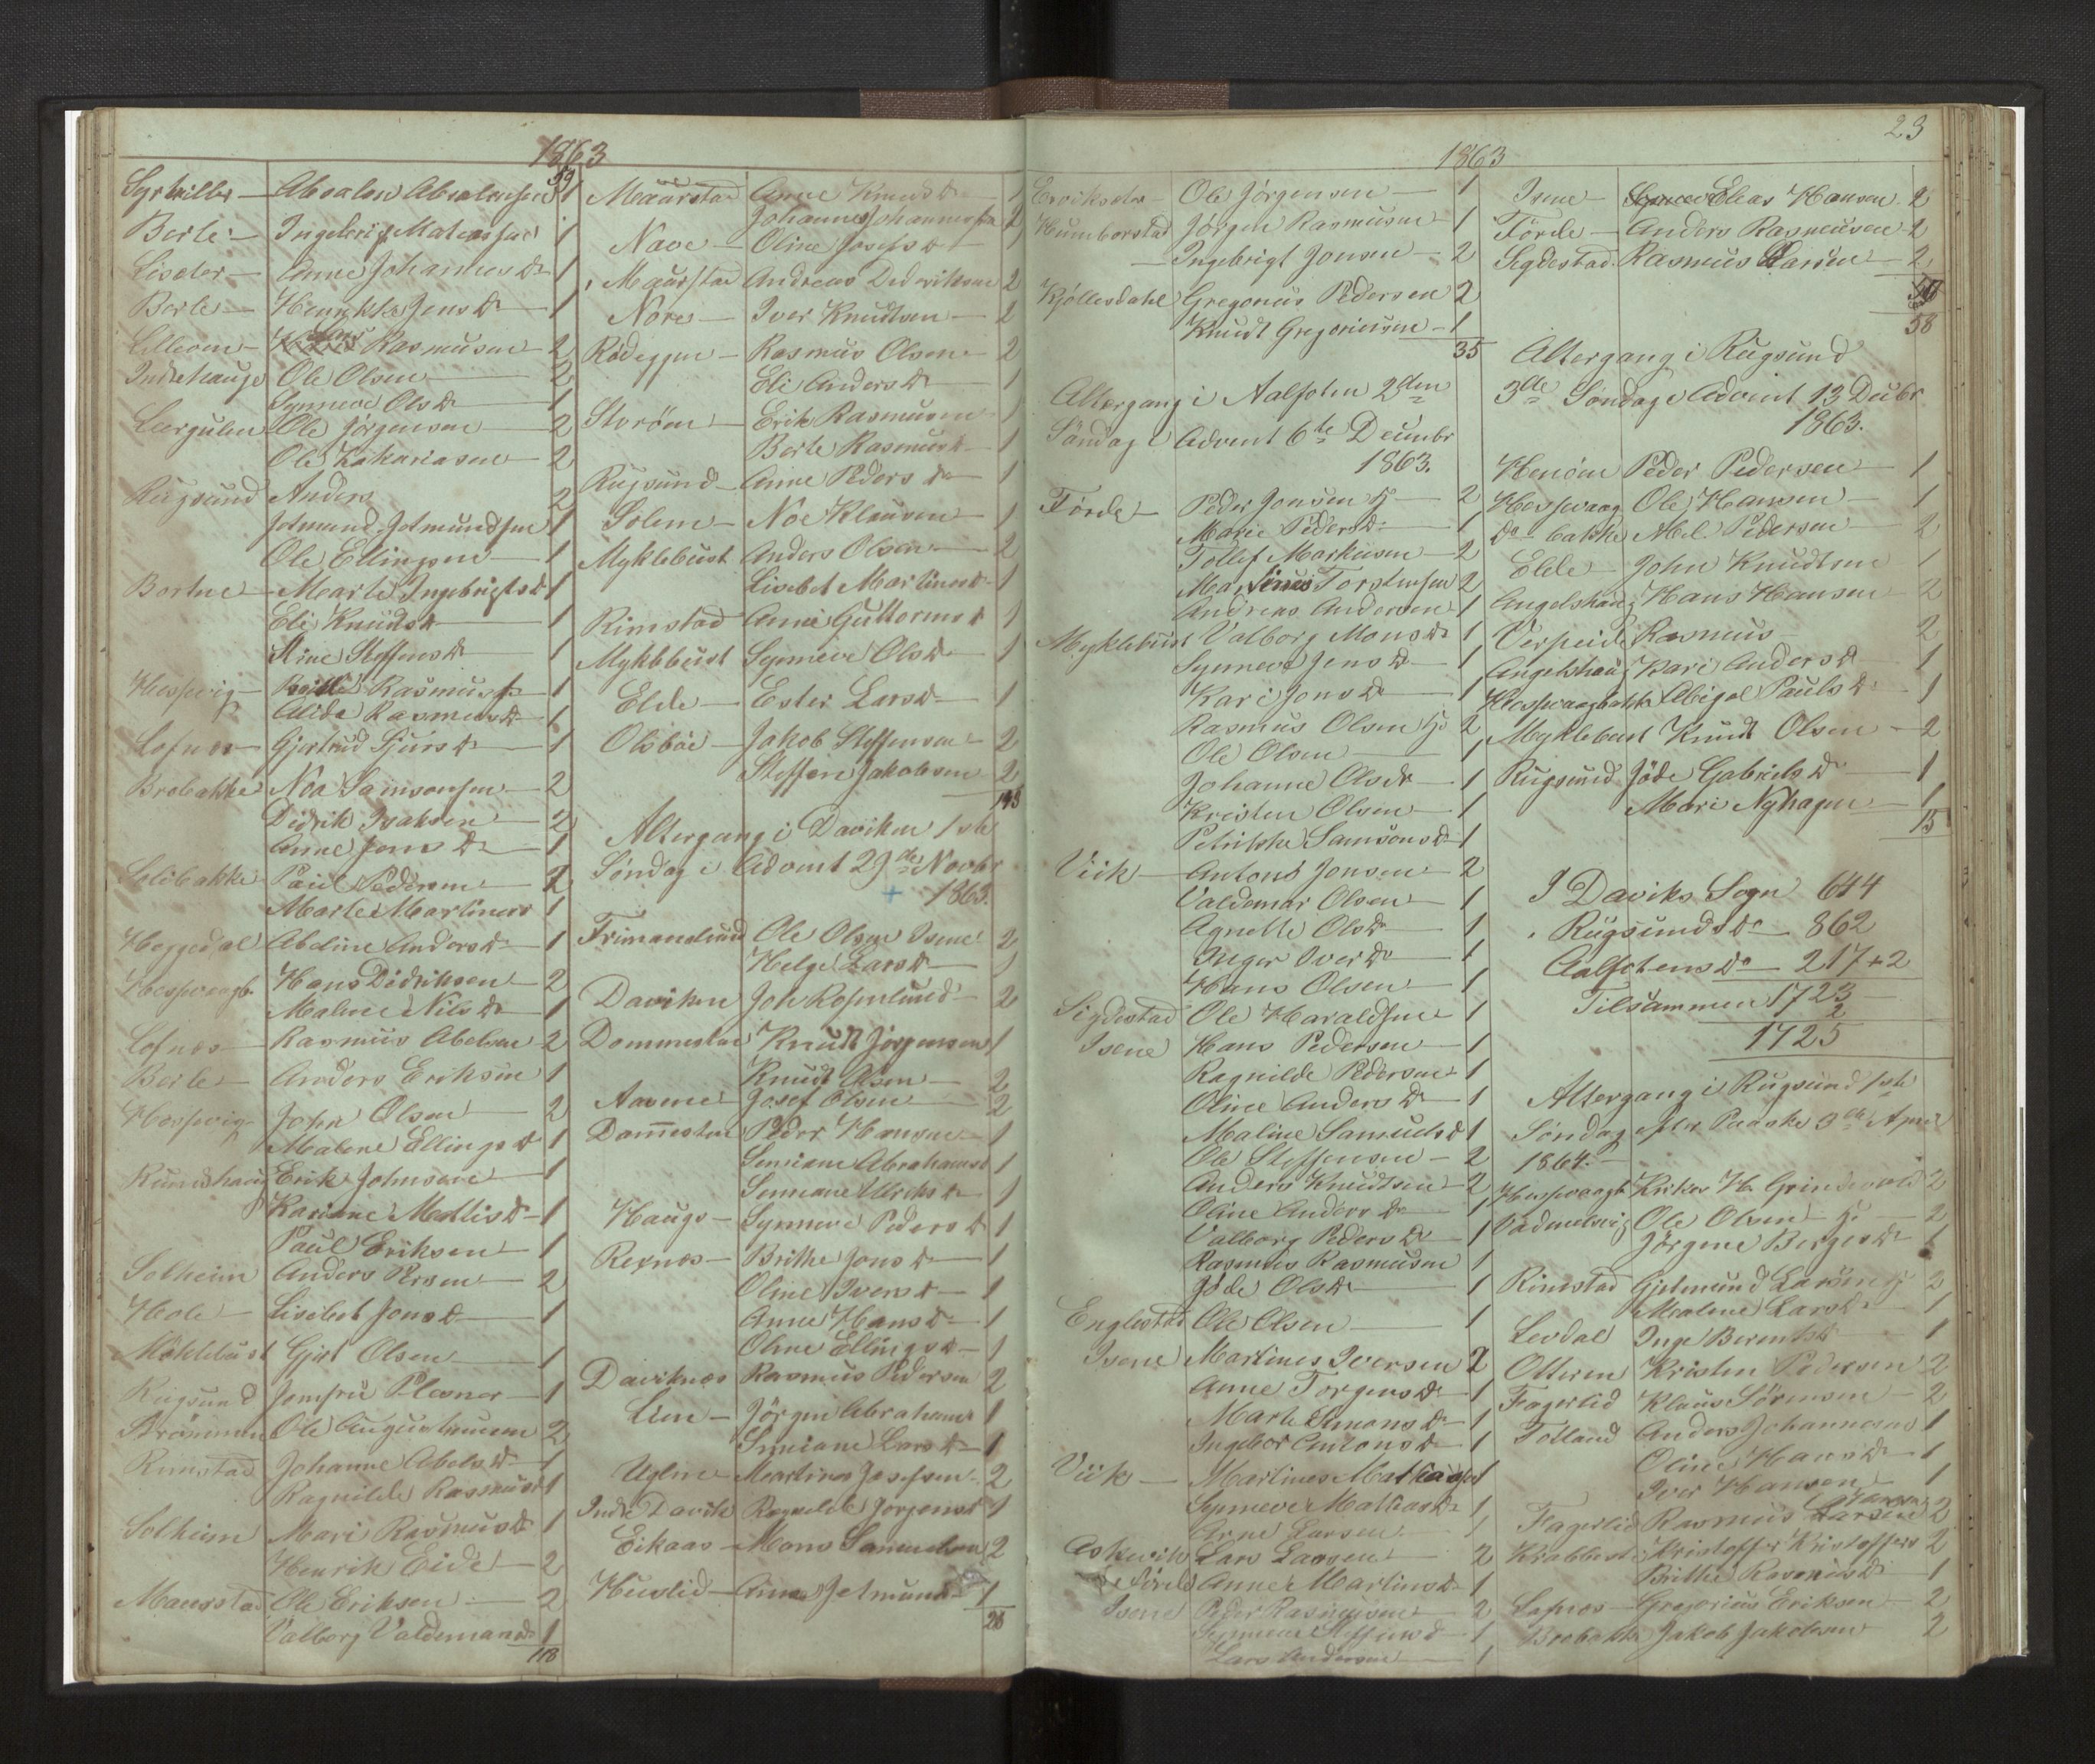 1863
59
Syrtveller — Absalon Absalonsen 1
Berle — Ingebrigt Matiassen 1
Liseter — Anne Johannesdr 1
Berle — Henrikke Jensdr 1
Lilleven — Hans Rasmusen — 2
Indrehauge Ole Olsen — 2
Synneve Olsdr — 1
Lergulen Ole Jörgensen — 2
Ole Zakariasen — 2
Rugsund Anders 2
Jetmund Jetmundsen 1
Ole Ellingsen — 1
Bortne — Marte Ingebrigtsdr 1
Eli Knudsdr — 1
Stine Steffensdr — 1
Hessevig — Rasmuss 1
Alida Rasmusdr — 1
Lofnes — Gjertrud Sjursdr — 1
Brobakke Noa Samsonsen — 2
Didrik Isaksen — 2
Anne Jensdr — 1
Solibakke Paul Pedersen — 2
Marte Martines 1
Heggedal Abeline Andersdr — 1
Hessevaagb. Hans Didriksen — 2
Malene Nilsdr — 1
Lofnes — Rasmus Abelsen — 2
Berle — Anders Eriksen 1
Hessevig John Olsen — 2
Malene Ellingsdr 1
Rundehaug Erik Johnsen — 1
Kariane Matlisdr — 1
Paul Eriksen — 1
Solheim Anders Persen — 2
Hole — Lisebet Jonsdr — 1
Mÿklebust Gjert Olsen — 1
Rugsund Jomfru Plesner — 1
Strömmen Ole Augustinusen 2
Rimstad Johanne Abelsdr — 1
Ragnilde Rasmusdr 1
Solheim Mari Rasmusdr 1
Henrik Eide — 2
Maurstad Ole Eriksen — 2
Valborg Valdemarsdr 1
118
Maurstad Anne Knudsdr — 1
Johannes Johannessen 2
Nave — Oline Josefsdr — 1
Maurstad Andreas Dideriksen 2
Nore — Iver Knudtsen — 2
Rödeggen — Rasmus Olsen — 2
Eli Andersdr — 1
Storöen — Erik Rasmusen 1
Berte Rasmusdr — 1
Rugsund — Anne Pedersdr — 1
Solem — Noe Klausen — 1
Myklebust Anders Olsen — 2
Lisebet Martinusdr — 1
Rimstad Anne Guttormsdr 1
Myklebust Synneve Olsdr — 1
Elde — Ester Larsdr — 1
Olsböe — Jakob Steffensen — 2
Steffen Jakobsen — 2
143
Altergang i Daviken 1ste
Söndag i Advent 29de Novbr
1863.
Frimandslund Ole Olsen Isene 2
Helge Larsdr — 1
Daviken Joh Rosenlund — 2
Dommesten Knut Jörgensen 1
Knud Olsen — 2
Aasene — Josef Olsen — 2
Dommesten Peder Hansen — 1
Semiane Abrahamsd 1
Semiane Ulriksdr — 1
Hauge — Synneve Pedersdr 1
Rexnes — Brithe Jonsdr — 1
Oline Iversdr — 1
Anne Hansdr — 1
Oline Ellingsdr — 1
Daviknes Rasmus Pedersen 2
Lien — Jörgen Abrahams 1
Semiane Larsdr — 1
Uglen — Martinus Josefsen — 2
Indre Davik Ragnilde Jörgensdr 1
Eikaas — Mons Samuelsen 2
Huslid — Anne Jetmunds — 1
28
23
1863
Eriksetr — Ole Jörgensen — 1
Humborstad Jörgen Rasmusen — 1
— Ingebrigt Jonsen — 2
Kjöllesdahl Gregorius Pedersen 2
Knudt Gregoriusen — 1
35
Altergang i Aalfoten 2den
Söndag i Advent 6te Decembr
1863.
Förde — Peder Jonsen G — 2
Marie Pedersdr — 1
Tollef Markusen — 2
Martinus Torstensen 2
Andreas Andersen 1
Myklebust Valborg Monsdr 1
Synneve Jensdr — 1
Kari Jonsdr — 1
Rasmus Olsen G 2
Ole Olsen — 1
Johanne Olsdr — 1
Kristen Olsen — 1
Petrikke Samsonsdr 1
Viik — Antons Jonsen — 2
Valdemar Olsen — 1
Agnette Olsdr — 1
Inger Iversdr — 1
Hans Olsen — 1
Sigdestad Ole Haraldsen 1
Isene Hans Pedersen — 1
Ragnilde Pedersen 1
Oline Andersdr — 1
Maline Samuelsdr 1
Ole Steffensen — 2
Anders Knudtsen — 2
Oline Andersdr — 1
Valborg Pedersdr — 1
Rasmus Rasmusen 1
Jöde Olsdr — 1
Englestad Ole Olsen — 1
Isene Martines Iversen 2
Anne Torgersdr — 1
Marte Simonsdr — 1
Ingebor Antonsdr — 1
Viik — Martines Matiassen 1
Synneve Matiasdr 1
Arne Larsen — 1
Askevik Lars Larsen — 2
Förde Anne Martinsdr — 1
Isene Peder Rasmusen — 2
Synneve Steffensd — 1
Lars Andersen — 1
Isene — Elias Hansen — 2
Förde — Anders Rasmusen 2
Sigdestad Rasmus Larsen — 2
58
Altergang i Rugsund
3de Söndag i Advent 13 Decbr
1863.
Henöen Peder Pedersen — 1
Hessevaag Ole Hansen — 1
do bakke Abel Pedersen — 2
Elde — John Knudtsen 1
Angelshaug Hans Hansen — 2
Verpeide Rasmus — 2
Angelshaug Kari Andersdr 1
Hessevaagbakke Abigel Paulsdr — 1
Myklebust Knudt Olsen — 2
Rugsund Jöde Gabrielsdr — 1
Mari Nyhagen — 1
15
I Daviks Sogn 644
„ Rugsunds do — 862
Aalfotens do — 217 + 2
Tilsammen 1723
2
1725
Altergang i Rugsund 1ste
Söndag efter Paaske 3de April
1864. —
Hessevaagb. Kriker H. Grindevold 2
Vademelsvig Ole Olsen G — 2
Jörgine Börgesdr 1
Rimstad Gjetmund Larsen G 2
Malene Larsdr — 1
Levdal Inge Berentsdr — 1
Otteren Kristen Pedersen — 2
Fagerlid Klaus Sörensen — 2
Totland Anders Johannesen 1
Oline Hansdr — 1
Iver Hansen — 1
Fagerlid Rasmus Hansen 2
Krabbest. Kristoffer Kristoffers 2
Brithe Rasmusdr — 1
Lofnes — Gregorius Eriksen — 2
Brobakke Jakob Jakobsen 2